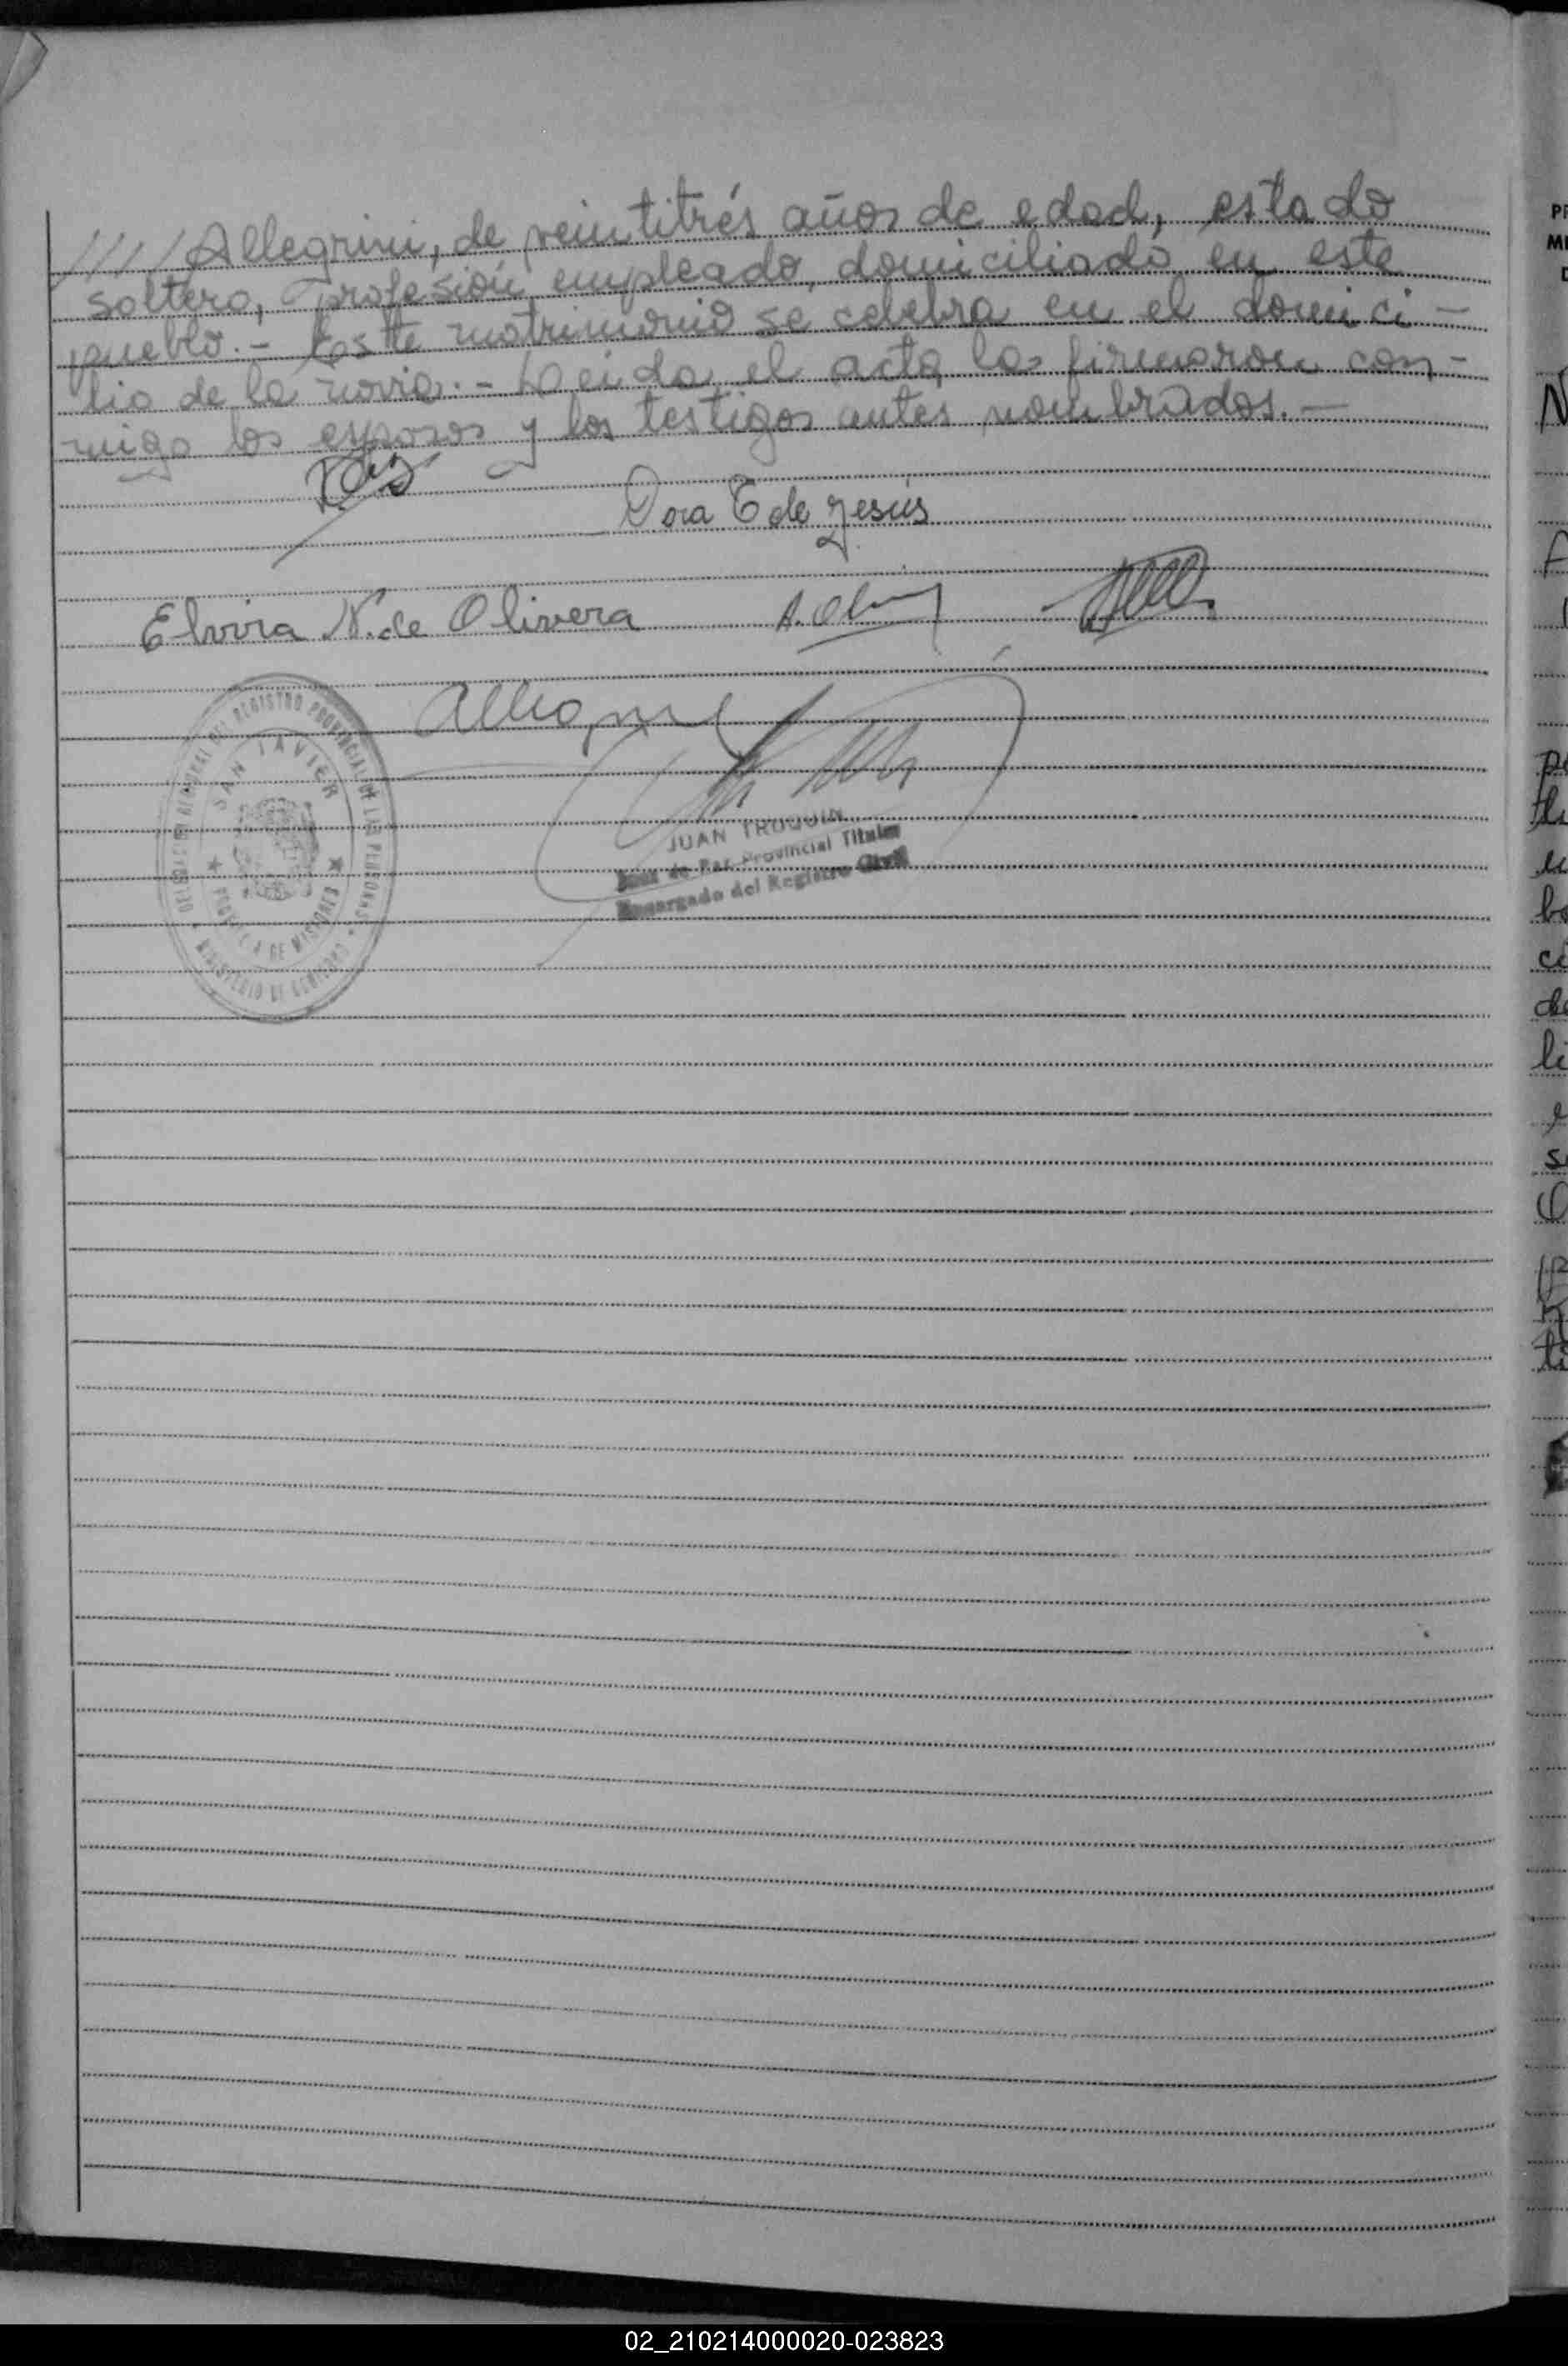 ///// Allegrini, de veintitrés años de edad, estado
soltero, profesión empleado, domiciliado en este
pueblo.- Este matrimonio se celebra en el domici-
lio de la novia.- Leída el acta la firmaron con-
migo los esposos y los testigos antes nombrados.-
Dora E de Jesús
Elvira N. de Olivera
DELEGACION SECCIONAL DEL REGISTRO PROVINCIAL DE LAS PERSONAS
SAN JAVIER
MINISTERIO DE GOBIERNO
JUAN TRUQUIN
Juez de Paz Provincial Titular
Encargado del Registro Civil
02_210214000020-023823